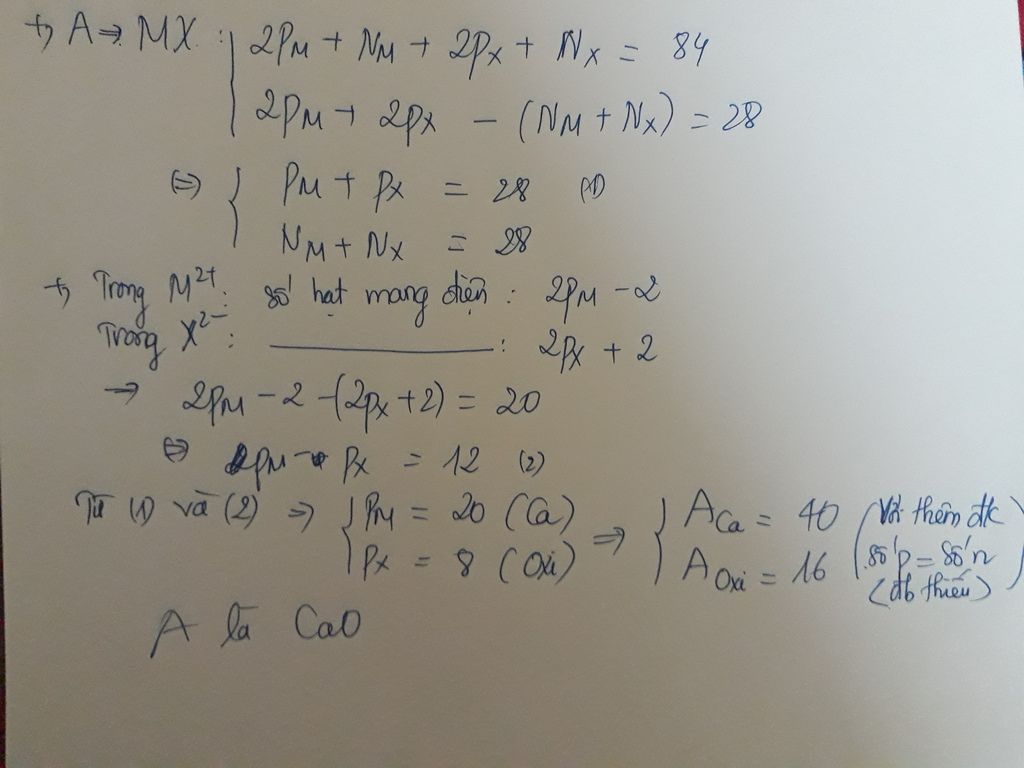 +, A => MX : { 2PM + NM + 2PX + NX = 84
2PM + 2PX - (NM + NX) = 28
<=> { PM + PX = 28 (1)
NM + NX = 28
+, Trong M²⁺: số hạt mang điện : 2PM - 2
Trong X²⁻ : ———————— : 2PX + 2
→ 2PM - 2 - (2PX + 2) = 20
<=> PM - PX = 12 (2)
Từ (1) và (2) => { PM = 20 (Ca) => { ACa = 40 (Với thêm đk
PX = 8 (Oxi) AOxi = 16 số p = số n
(đb thiếu)
A là CaO